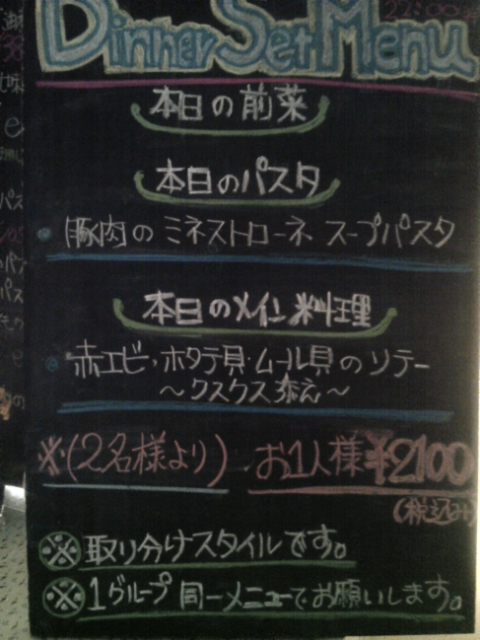 22:00
Dinner Set Menu
本日の前菜
本日のパスタ
・豚肉の ミネストローネ スープパスタ
本日のメイン料理
・赤エビ・ホタテ貝・ムール貝のソテー
～クスクス添え～
※(2名様より) お1人様¥2100
(税込み)
※取り分けスタイルです。
※1グループ 同一メニューでお願いします。